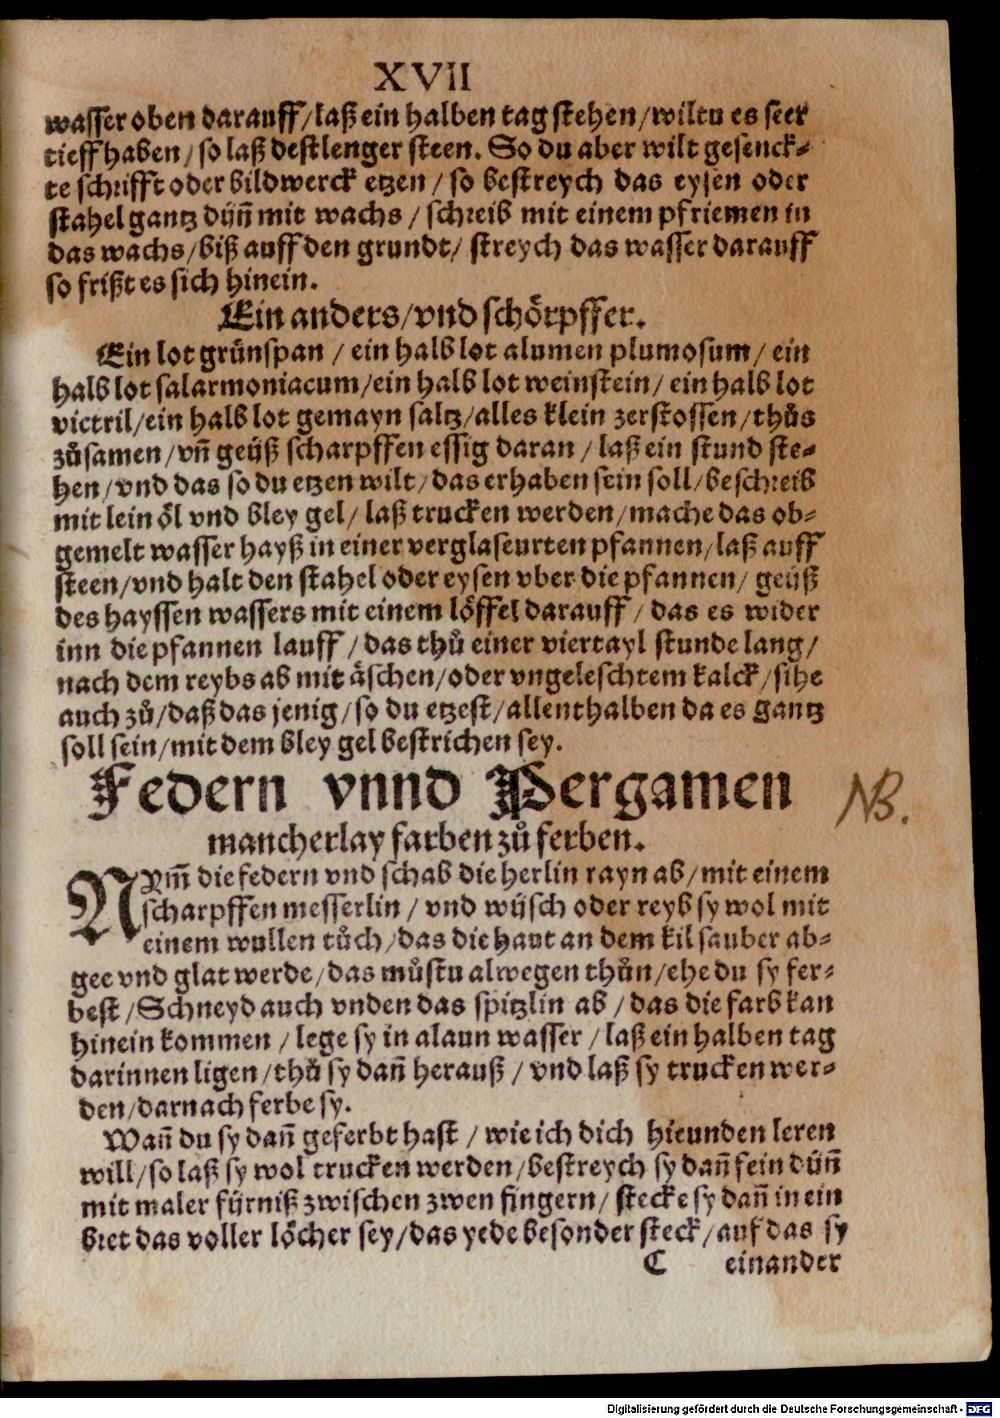 XVII
wasser oben darauff/laß ein halben tag stehen/wiltu es seer
tieff haben/so laß destlenger steen. So du aber wilt gesenck⸗
te schrifft oder bildwerck etzen/so bestreych das eysen oder
stahel gantz dün̄ mit wachs/schreib mit einem pfriemen in
das wachs/biß auff den grundt/streych das wasser darauff
so frißt es sich hinein.
Ein anders/vnd schoͤrpffer.
Ein lot gruͤnspan/ein halb lot alumen plumosum/ein
halb lot salarmoniacum/ein halb lot weinstein/ein halb lot
victril/ein halb lot gemayn saltz/alles klein zerstossen/thuͦs
zuͦsamen/vn̄ geüß scharpffen essig daran/laß ein stund ste⸗
hen/vnd das so du etzen wilt/das erhaben sein soll/beschreib
mit lein oͤl vnd bley gel/laß trucken werden/mache das ob⸗
gemelt wasser hayß in einer verglaseurten pfannen/laß auff
steen/vnd halt den stahel oder eysen vber die pfannen/geüß
des hayssen wassers mit einem loͤffel darauff/das es wider
inn die pfannen lauff/das thuͦ einer viertayl stunde lang/
nach dem reybs ab mit aͤschen/oder vngeleschtem kalck/sihe
auch zuͦ/daß das jenig/so du etzest/allenthalben da es gantz
soll sein/mit dem bley gel bestrichen sey.
Federn vnnd Pergamen
NB.
mancherlay farben zuͦ ferben.
NYm̄ die federn vnd schab die herlin rayn ab/mit einem
scharpffen messerlin/vnd wüsch oder reyb sy wol mit
einem wullen tuͦch/das die haut an dem kil sauber ab⸗
gee vnd glat werde/das muͦstu alwegen thuͦn/ehe du sy fer⸗
best/Schneyd auch vnden das spitzlin ab/das die farb kan
hinein kommen/lege sy in alaun wasser/laß ein halben tag
darinnen ligen/thuͦ sy dan̄ herauß/vnd laß sy trucken wer⸗
den/darnach ferbe sy.
Wan̄ du sy dan̄ geferbt hast/wie ich dich hieunden leren
will/so laß sy wol trucken werden/bestreych sy dan̄ fein dün̄
mit maler fürniß zwischen zwen fingern/stecke sy dan̄ in ein
bret das voller loͤcher sey/das yede besonder steck/auf das sy
C einander
Digitalisierung gefördert durch die Deutsche Forschungsgemeinschaft - DFG